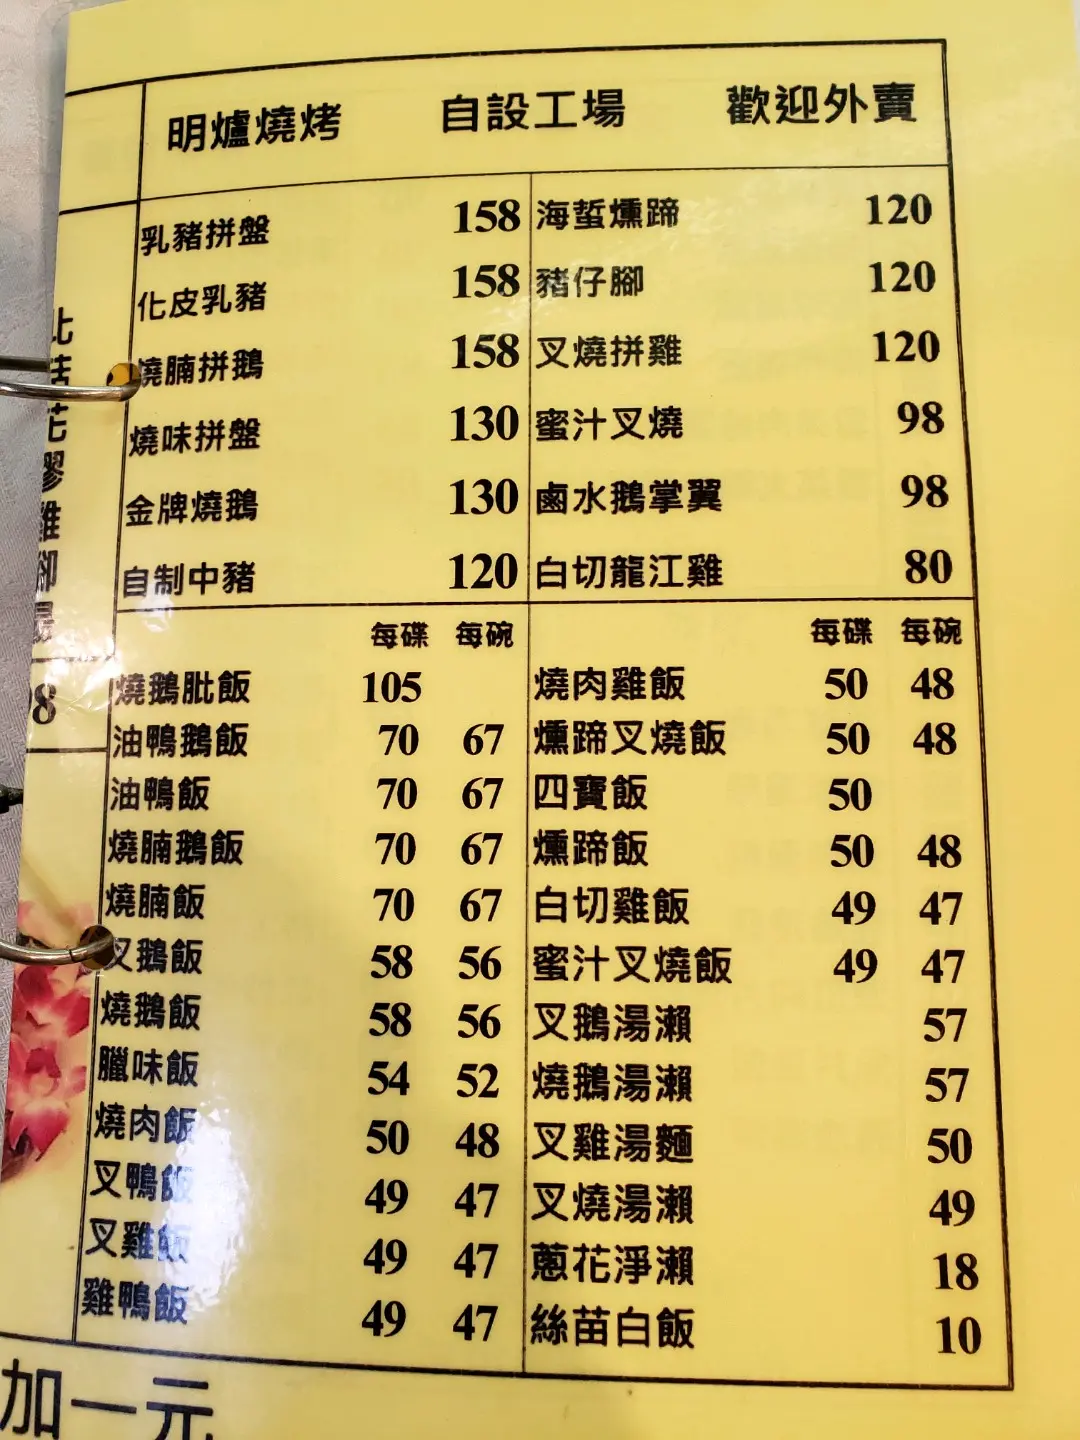 明爐燒烤 自設工場 歡迎外賣
乳豬拼盤 158 海蜇燻蹄 120
化皮乳豬 158 豬仔腳 120
燒腩拼鵝 158 叉燒拼雞 120
燒味拼盤 130 蜜汁叉燒 98
金牌燒鵝 130 鹵水鵝掌翼 98
自制中豬 120 白切龍江雞 80
每碟 每碗 每碟 每碗
燒鵝肶飯 105 燒肉雞飯 50 48
油鴨鵝飯 70 67 燻蹄叉燒飯 50 48
油鴨飯 70 67 四寶飯 50
燒腩鵝飯 70 67 燻蹄飯 50 48
燒腩飯 70 67 白切雞飯 49 47
叉鵝飯 58 56 蜜汁叉燒飯 49 47
燒鵝飯 58 56 叉鵝湯瀨 57
臘味飯 54 52 燒鵝湯瀨 57
燒肉飯 50 48 叉雞湯麵 50
叉鴨飯 49 47 叉燒湯瀨 49
叉雞飯 49 47 蔥花淨瀨 18
雞鴨飯 49 47 絲苗白飯 10
花膠雞腳湯
8
加一元